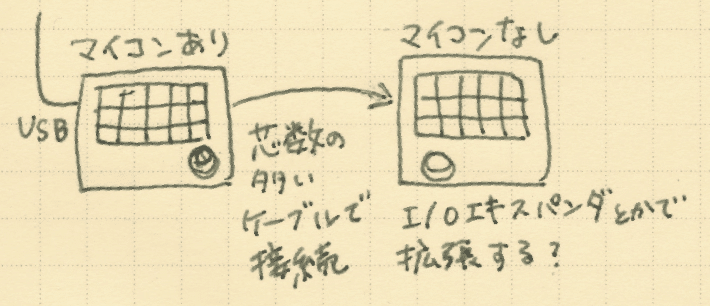 マイコンあり
マイコンなし
USB
芯数の
多い
ケーブルで
接続
I/Oエキスパンダとかで
拡張する?